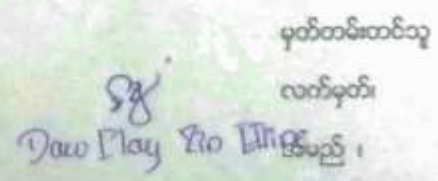 မှတ်တမ်းတင်သူ
လက်မှတ်၊
Daw May Zin အမည် ၊